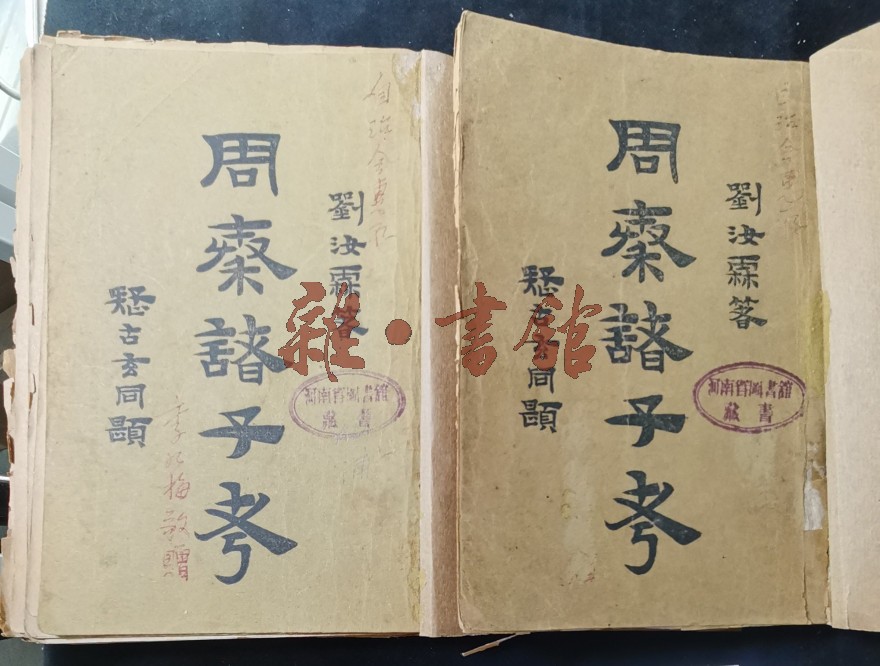 周秦諸子考
劉汝霖著
慭古玄同題
敬贈
河南省圖書館
藏書
周秦諸子考
劉汝霖著
慭古玄同題
河南省圖書館
藏書
雜·書館